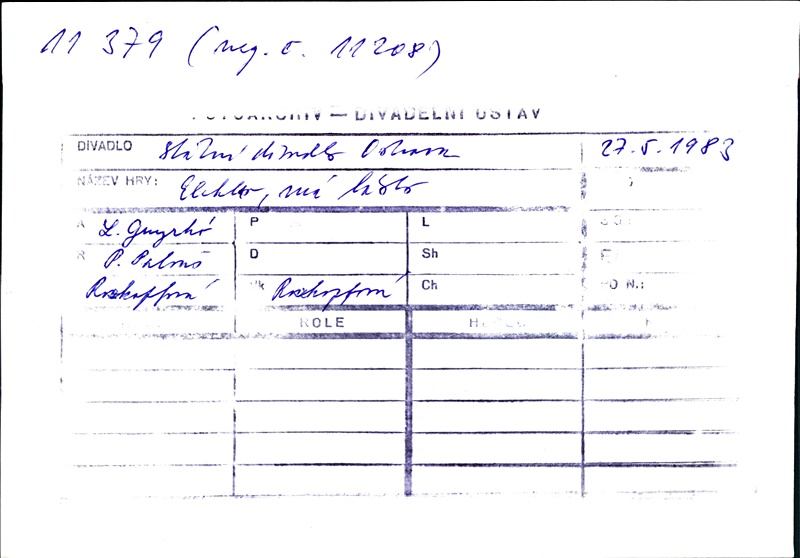 11 379 (neg. č. 11208)
FOTOARCHIV — DIVADELNÍ ÚSTAV
DIVADLO Státní divadlo Ostrava 27. 5. 1983
NÁZEV HRY: Elektro, má lásko
A L. Gyurkó P L
R P. Palouš D Sh
Rozkopfová Vk Rozkopfová Ch FO N.:
ROLE